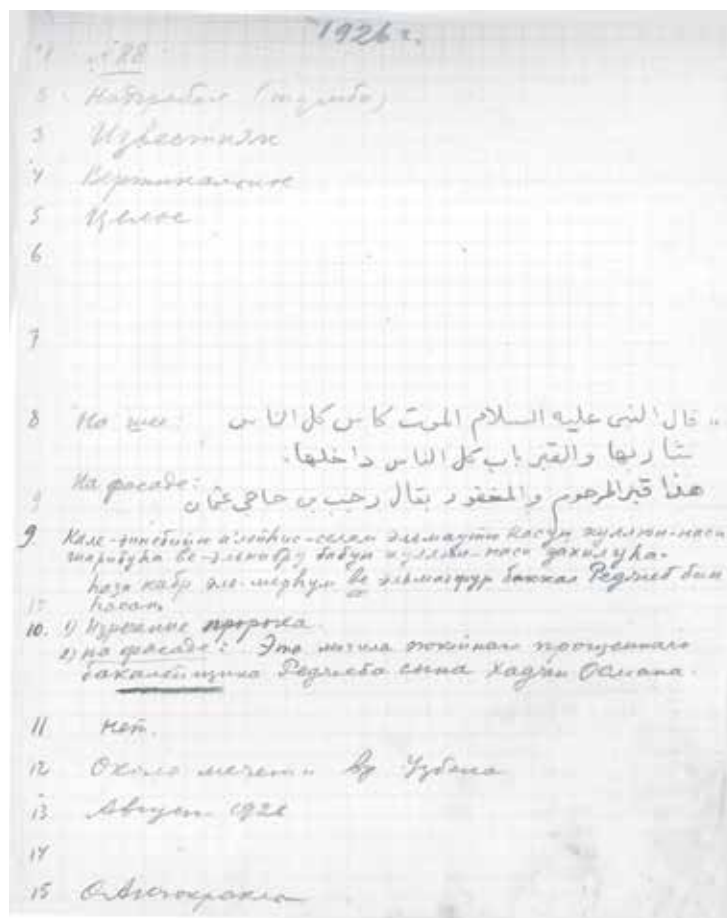 1926 г.
1 № 88
2 Надгробие (тумба)
3 Известняк
4 Вертикальное
5 Целое
6
7
8 На шее: قال النبى عليه السلام الموت كاس كل الناس
شاربها والقبر باب كل الناس داخلها.
9 На фасаде: هذا قبر المرحوم والمغفور بقال رجب بن حاجى عثمان
9. Кале-ннебийи алейхис-селам эльмаути касун куллюн-наси
шарибуha ве-элькабру бабун куллюн-наси дахилуha.
hаза кабр эль-мерhум ве эльмагфур баккал Реджеб бин
10 hасан
10. 1) Изречение пророка.
2) На фасаде: Это могила покойного прощенного
бакалейщика Реджеба сына Хаджи Османа.
11 Нет.
12 Около мечети Узбека
13 Август 1926
14
15 О. Акчокраклы